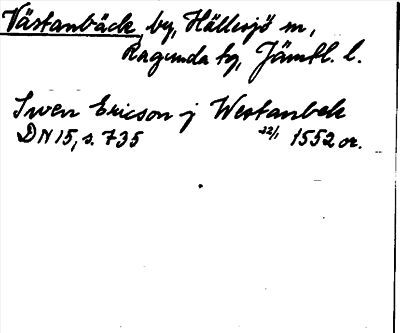 Västanbäck by, Hällesjö sn,
Ragunda tg, Jämtl. l.
Swen Ericson j Westanbek
DN 15, s. 735 22/1 1552 or.